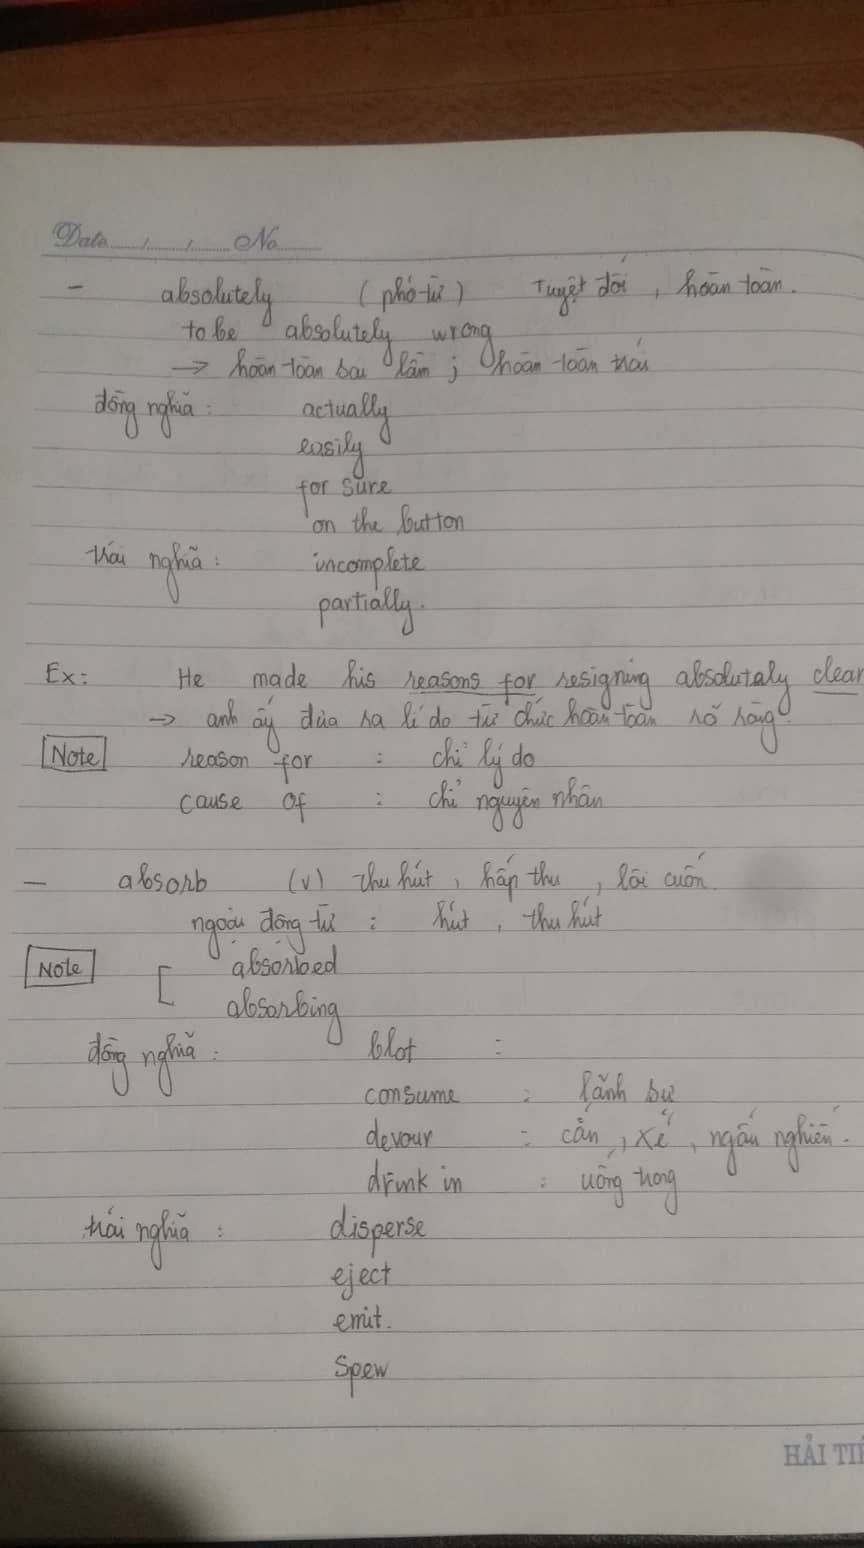 Date ....../....../...... No ......
- absolutely (phó từ) Tuyệt đối , hoàn toàn.
to be absolutely wrong
→ hoàn toàn sai lầm ; hoàn toàn trái
đồng nghĩa : actually
easily
for sure
on the button
trái nghĩa : incomplete
partially.
Ex: He made his reasons for resigning absolutaly clear
→ anh ấy đưa ra lí do từ chức hoàn toàn rõ ràng.
Note reason for : chỉ lý do
cause of : chỉ nguyên nhân
- absorb (v) thu hút , hấp thu , lôi cuốn.
ngoại động từ : hút , thu hút
Note [ absorbed
absorbing
đồng nghĩa : blot :
consume : lãnh sự
devour : cắn , xé , ngấu nghiến.
drink in : uống trong
trái nghĩa : disperse
eject
emit.
spew
HẢI TI